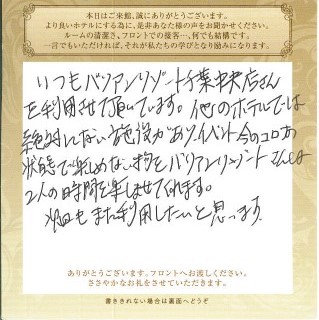 本日はご来館、誠にありがとうございます。
より良いホテルにする為に、是非あなた様の声をお聞かせください。
ルームの清潔さ、フロントでの接客…、何でも結構です。
一言でもいただければ、それが私たちの学びとなり励みになります。
いつもバリアンリゾート千葉中央店さん
を利用させて頂いています。他のホテルでは
絶対しない施設があり、イベント 今のコロナの
状態で楽しめない物をバリアンリゾートさんは
2人の時間を楽しませてくれます。
次回もまた利用したいと思います
ありがとうございます。フロントへお渡しください。
ささやかなお礼をさせていただきます。
書ききれない場合は裏面へどうぞ